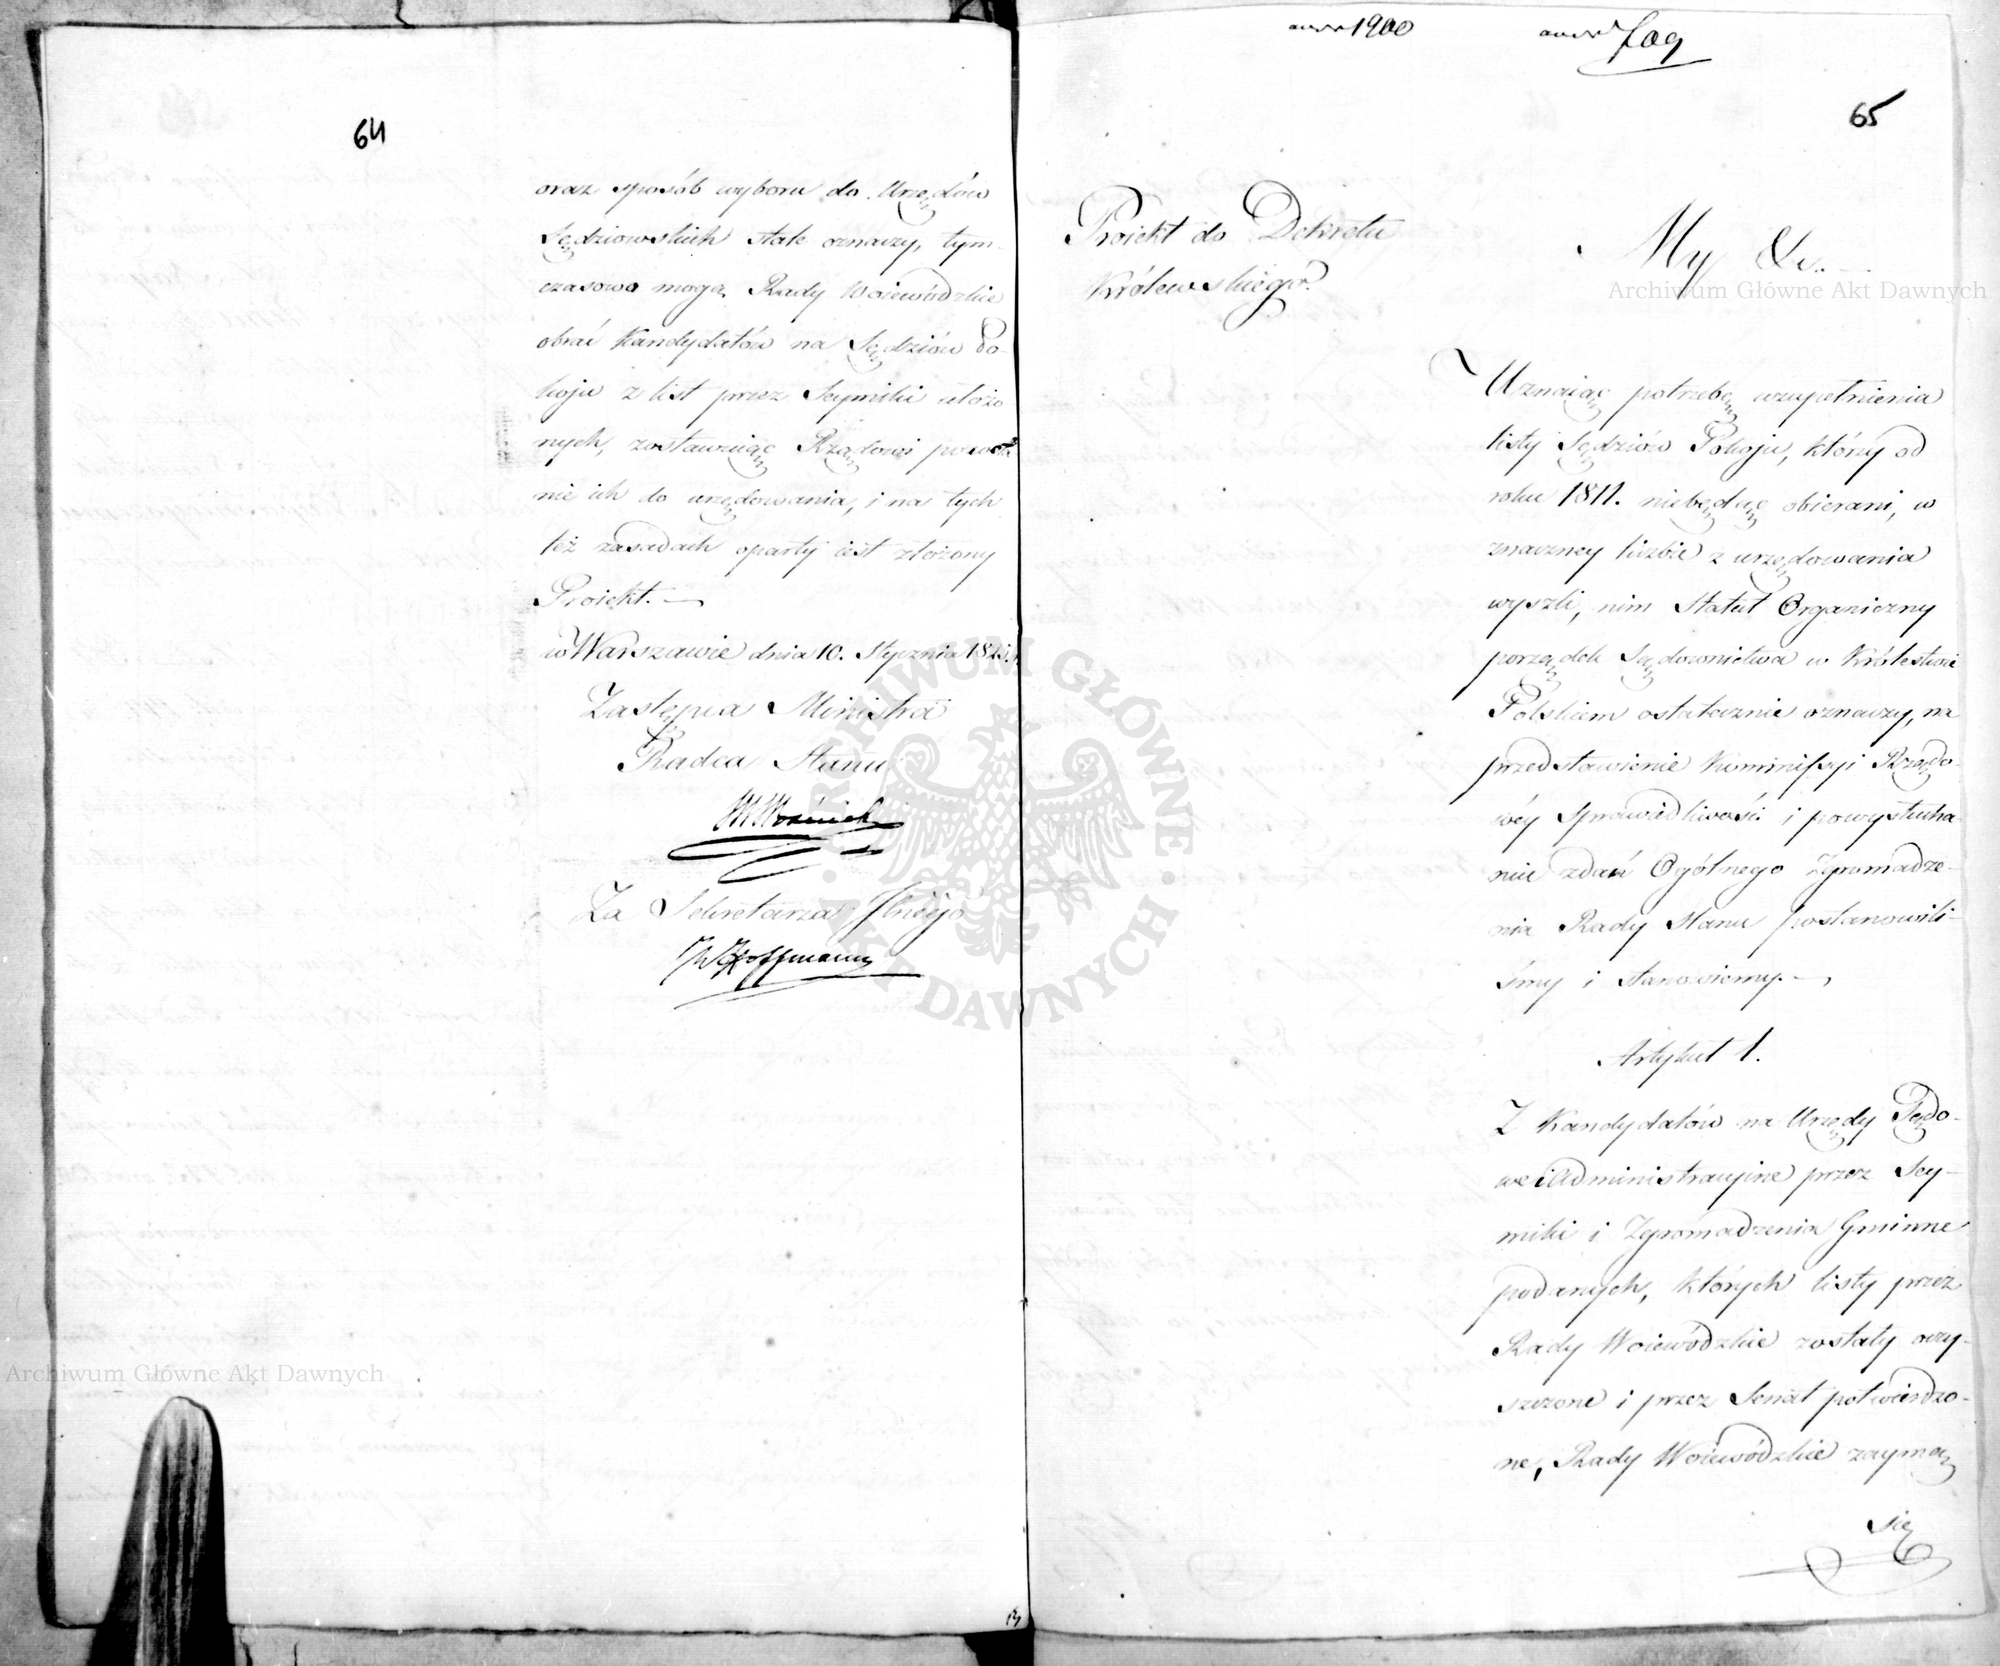 64
oraz sposób wyboru do Urzędów
Sędziowskich stale oznaczy, tym-
czasowo mogą Rady Woiewódzkie
obrać Kandydatów na Sędziów Po-
koju z list przez Seymiki ułożo
nych, zostawuiąc Rządowi powoła
nie ich do urzędowania, i na tych
też zasadach oparty iest złożony
Proiekt.—
w Warszawie dnia 10. Stycznia 182
Zastępca Ministra
Radca Stanu
M Woźnicki
Za Sekretarza Jlnego
Hoffmann
1900
fag
65
Proiekt do Dekretu
Królewskiego.
My &c.
Uznaiąc potrzebę uzupełnienia
listy Sędziów Pokoju, którzy od
roku 1811. niebędąc obierani, w
znaczney liczbie z urzędowania
wyszli, nim Statut Organiczny
porządek Sądownictwa w Królestwie
Polskiem ostatecznie oznaczy, na
przedstawienie Kommissyi Rządo-
wéy Sprawiedliwości i powysłucha-
niu zdań Ogólnego Zgromadze-
nia Rady Stanu postanowili-
śmy i stanowiemy.—
Artykuł 1.
Z Kandydatów na Urzędy Sądo-
we i Administracyine przez Sey-
miki i Zgromadzenia Gminne
podanych, których listy przez
Rady Woiewódzkie zostały oczy-
szczone i przez Senat potwierdzo-
ne, Rady Woiewódzkie zaymą
się
Archiwum Główne Akt Dawnych
Archiwum Główne Akt Dawnych
ARCHIWUM GŁÓWNE · AKT DAWNYCH ·